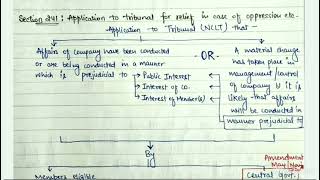 Section 241: Application to tribunal for relief in case of oppression etc.
Application to Tribunal (NCLT) that
Affairs of company have been conducted
or are being conducted in a manner
which is prejudicial to
Public Interest
Interest of Co.
Interest of Member(s)
-OR-
A material change
has taken place in
management/control
of company & it is
likely that affairs
will be conducted in
manner prejudicial to
By
Amendment
May
Members eligible
Central Govt.